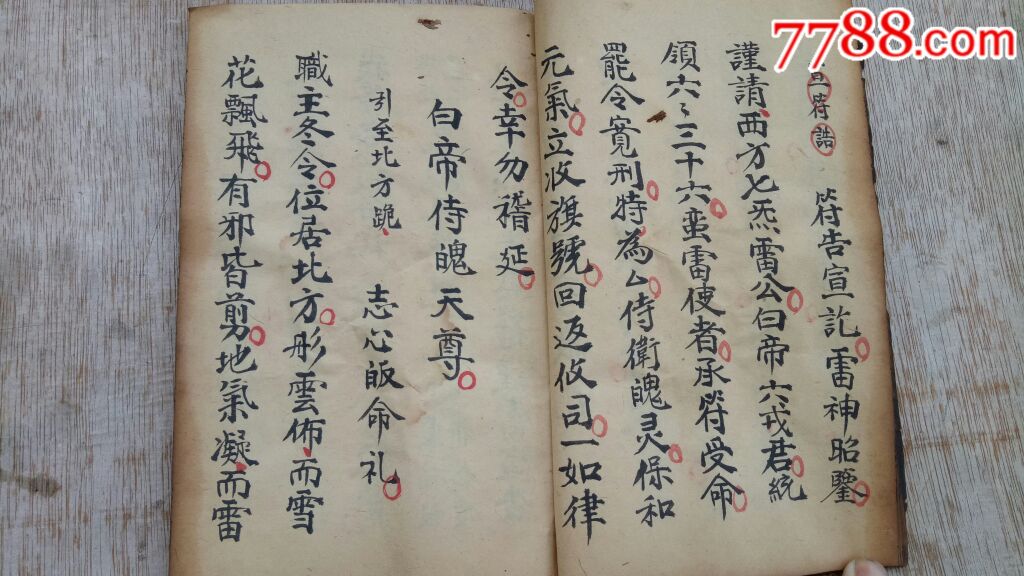 7788.com
宣符誥 符告宣訖雷神昭鑒
謹請西方七炁雷公白帝六戎君統
領六〻三十六蛮雷使者承符受命
罷令寛刑特為厶侍衛魄灵保和
元氣立收旗號回返攸司一如律
令幸勿稽延
白帝侍魄天尊
引至北方跪 志心皈命礼
職主冬令位居北方彤雲佈而雪
花飄飛有邪皆剪地氣凝而雷